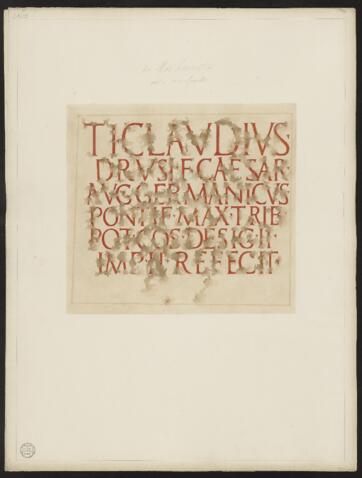 TI·CLAVDIVS·
DRVSI·F·CAESAR
AVG·GERMANICVS
PONTIF·MAX·TRIB
POT·COS·DESIG·II·
IMP·II·REFECIT·